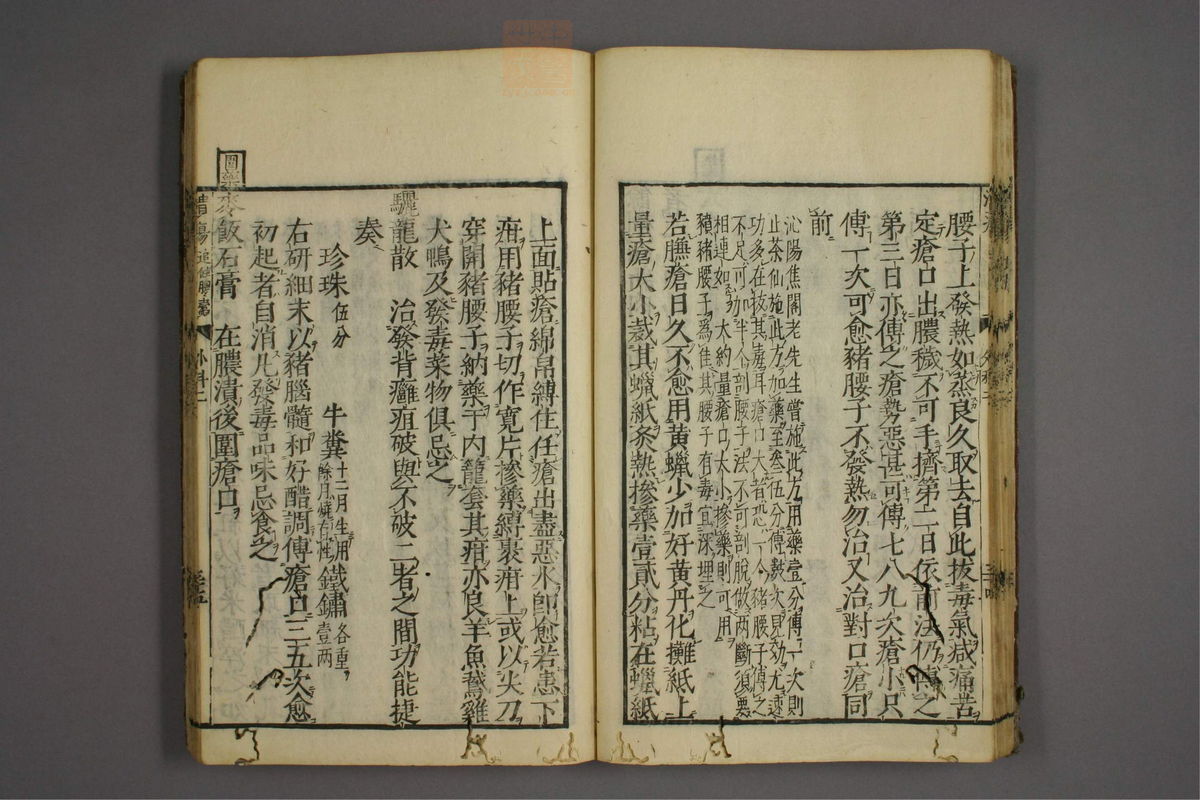 腰子上發熱如蒸良久取去自此拔毒氣減痛苦
定瘡口出膿穢不可手擠第二日依前法仍傅之
第三日亦傅之瘡勢惡甚可傅七八九次瘡小只
傅一次可愈豬腰子不發熱勿治又治對口瘡同
前
沁陽焦閣老先生嘗施此方用藥壹分傅一次則
止茶仙施此方加藥至叁伍分傅數次見効尤速
功多在拔其毒耳瘡口大者恐一个豬腰子傅之
不足可加半个剖腰子法不可剖脫做两斷須要
相連如 大約量瘡口大小摻藥則可用
豶豬腰子爲佳其腰子有毒宜深埋之
若臁瘡日久不愈用黄蠟少加好黄丹化攤紙上
量瘡大小裁其蠟紙炙熱摻藥壹貳分粘在蠟紙
上面貼瘡綿帛縛住任瘡出盡惡水卽愈若患下
疳用豬腰子切作寛片摻藥縛裹疳上或以尖刀
穿開豬腰子納藥于内籠套其疳亦良羊魚鵞雞
犬鴨及發毒菜物俱忌之
驪龍散 治發背癰疽破與不破二者之間功能捷
奏
珍珠伍分 牛糞十二月生用餘月燒存性 鐵鏽各重壹两
右研細末以豬腦髓和好醋調傅瘡口三五次愈
初起者自消凡發毒品味忌食之
圍藥麥飯石膏 在膿潰後圍瘡口